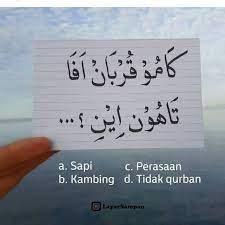 كَامُوْ قُرْبَانْ اَفَا
تَاهُوْن اِيْنِ ؟ ...
a. Sapi
b. Kambing
c. Perasaan
d. Tidak qurban
LayarSampan